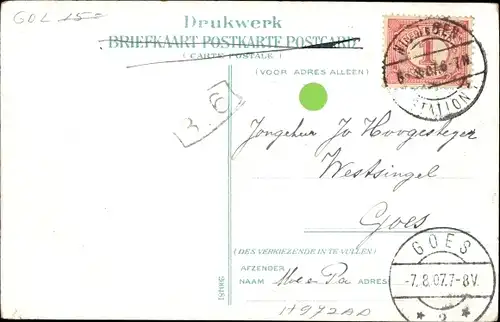 GOL 150
Drukwerk
BRIEFKAART POSTKARTE POSTCARD
(CARTE POSTALE)
(VOOR ADRES ALLEEN)
1
STATION
3.6
Jongeheer Jo Hoogesteger
Westsingel
Goes
(DES VERKIEZENDE IN TE VULLEN)
AFZENDER
NAAM Moe en Pa ADRES
H972AD
GOES
-7.8.07.7-8V.
2